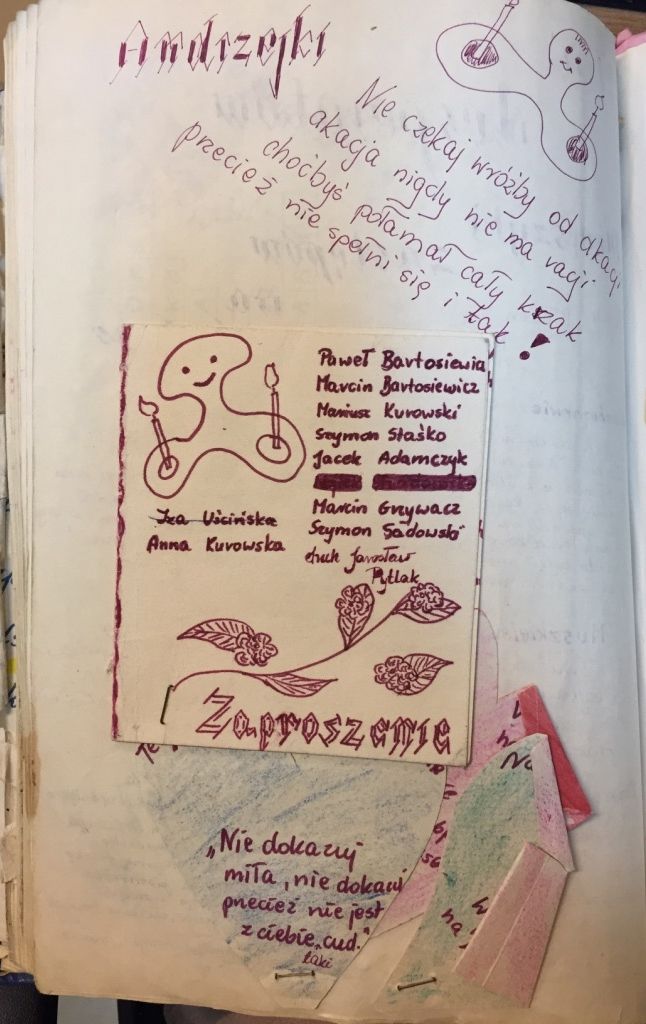 Andrzejki
Nie czekaj wróżby od akacji
akacja nigdy nie ma racji
choćbyś połamał cały krzak
przecież nie spełni się i tak!
Paweł Bartosiewicz
Marcin Bartosiewicz
Mariusz Kurowski
Szymon Staśko
Jacek Adamczyk
Marcin Grzywacz
Szymon Sadowski
druh Jarosław
Pytlak
Iza Uścińska
Anna Kurowska
Zaproszenie
„Nie dokazuj
miła, nie dokazuj
przecież nie jest
z ciebie „cud."
taki